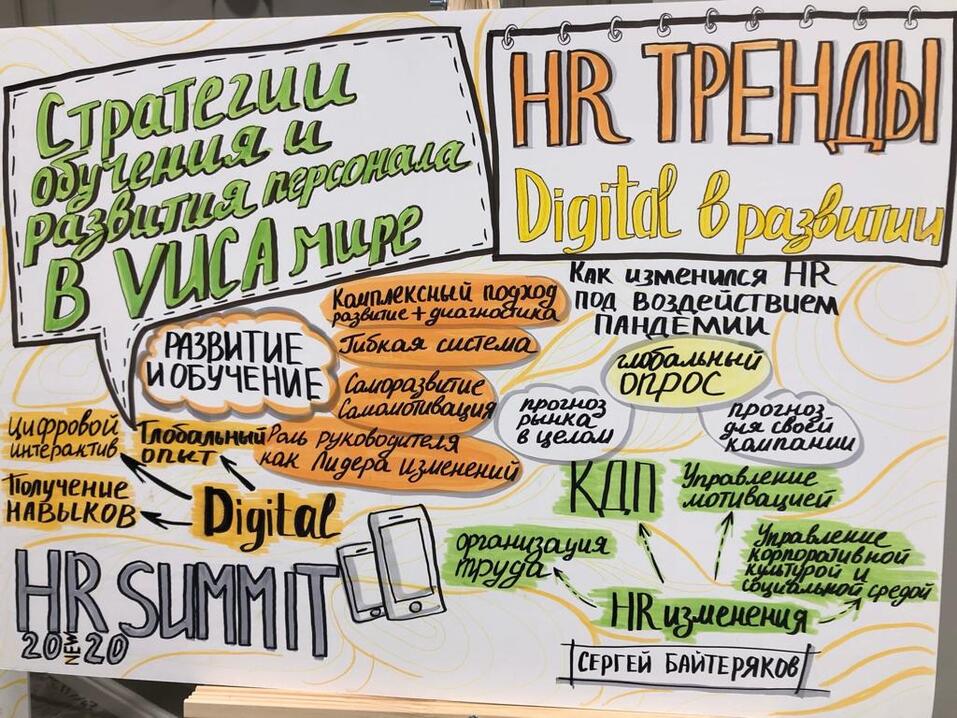 Стратегии
обучения и
развития персонала
в VUCA мире
HR ТРЕНДЫ
Digital в развитии
РАЗВИТИЕ
И ОБУЧЕНИЕ
Комплексный подход
развитие + диагностика
Гибкая система
Саморазвитие
Самомотивация
Роль руководителя
как Лидера изменений
Цифровой
интерактив
Глобальный
опыт
Получение
НАВЫКОВ
Digital
HR SUMMIT
20 NEW 20
Как изменился HR
под воздействием
ПАНДЕМИИ
глобальный
ОПРОС
прогноз
рынка
в целом
прогноз
для своей
компании
КДП
Управление
мотивацией
организация
труда
Управление
корпоративной
культурой и
социальной средой
HR изменения
СЕРГЕЙ БАЙТЕРЯКОВ